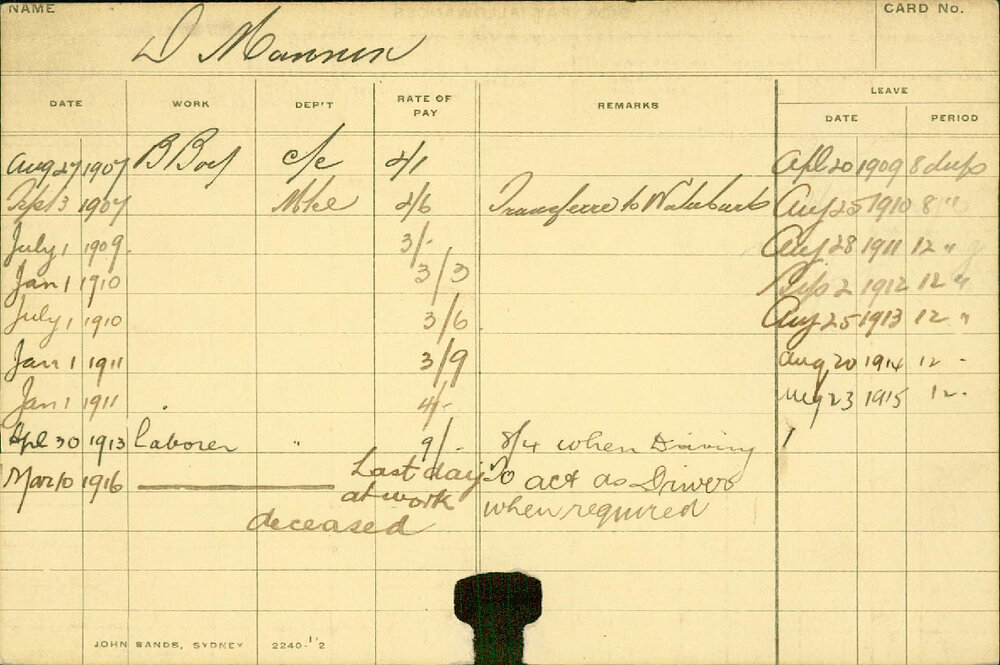 NAME
CARD No.
D
DATE WORK DEP'T RATE OF PAY REMARKS LEAVE
DATE PERIOD
Aug 27 1907 B Boy c/e 2/1 Apl 20 1909 8 days
Sept 3 1907 2/6 Transferre to Aug 25 1910 8 "
July 1 1909. 3/- Aug 28 1911 12 "
Jan 1 1910 3/3 Sep 2 1912 12 "
July 1 1910 3/6 Aug 25 1913 12 "
Jan 1 1911 3/9 Aug 20 1914 12 -
Jan 1 1911 4/- Aug 23 1915 12 -
Apl 30 1913 Laborer " 9/- 8/4 when Driving
Mar 10 1916 Last day To act as Driver
at work when required
deceased
JOHN SANDS, SYDNEY 2240-1'2